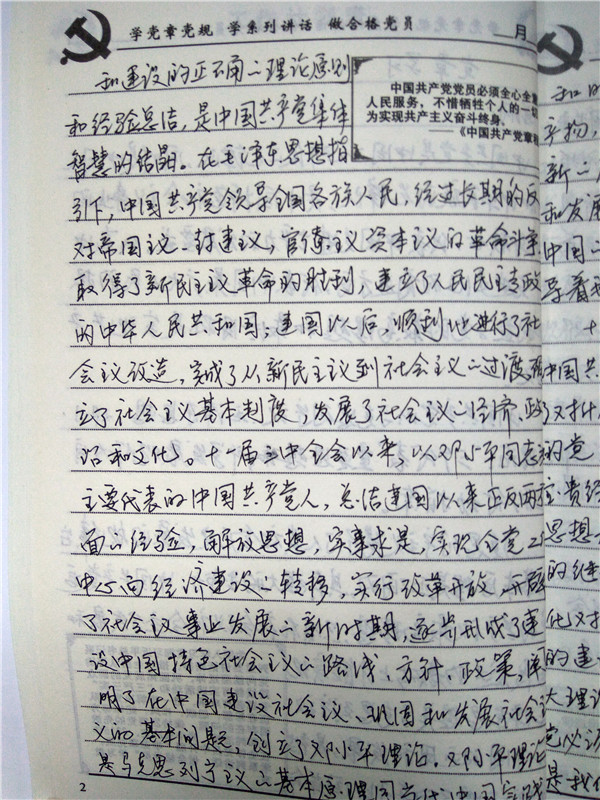 学党章党规 学系列讲话 做合格党员
月
中国共产党党员必须全心全
人民服务，不惜牺牲个人的一切
为实现共产主义奋斗终身。
——《中国共产党章程
和建设的正确的理论原则
和经验总结，是中国共产党集体
智慧的结晶。在毛泽东思想指
引下，中国共产党领导全国各族人民，经过长期的反
对帝国主义、封建主义、官僚主义资本主义的革命斗争
取得了新民主主义革命的胜利，建立了人民民主专政
的中华人民共和国；建国以后，顺利地进行了社
会主义改造，完成了从新民主主义到社会主义的过渡，确
立了社会主义基本制度，发展了社会主义的经济、政
治和文化。十一届三中全会以来，以邓小平同志为
主要代表的中国共产党人，总结建国以来正反两
面的经验，解放思想，实事求是，实现全党工作
中心向经济建设的转移，实行改革开放，开辟
了社会主义事业发展的新时期，逐步形成了建
设中国特色社会主义的路线、方针、政策，阐
明了在中国建设社会主义、巩固和发展社会主
义的基本问题，创立了邓小平理论。邓小平理论
是马克思列宁主义的基本原理同当代中国实践
2
和的
产物，
新的
和发展
中国
导着
十
中国共
又对什
的党
贵经
思想
的继
化对
的建
大理论
党必须
是我们